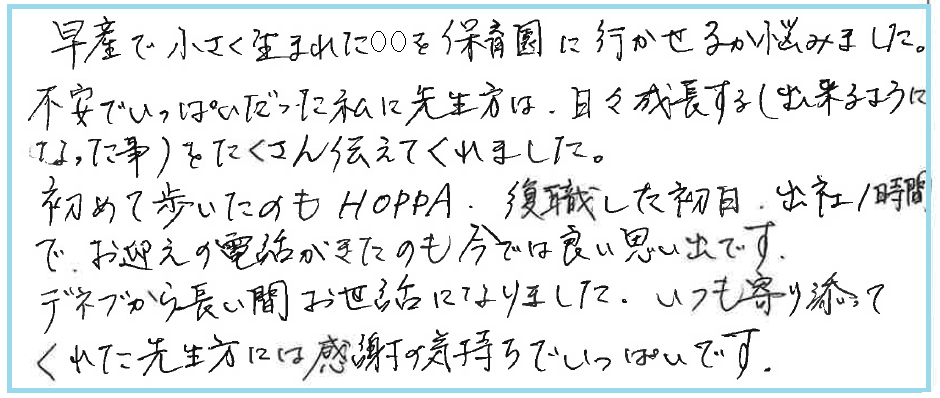 早産で小さく生まれた○○を保育園に行かせるか悩みました。
不安でいっぱいだった私に先生方は、日々成長する(出来るように
なった事)をたくさん伝えてくれました。
初めて歩いたのもHOPPA、復職した初日、出社1時間
で、お迎えの電話がきたのも今では良い思い出です。
デネブから長い間お世話になりました。いつも寄り添って
くれた先生方には感謝の気持ちでいっぱいです。